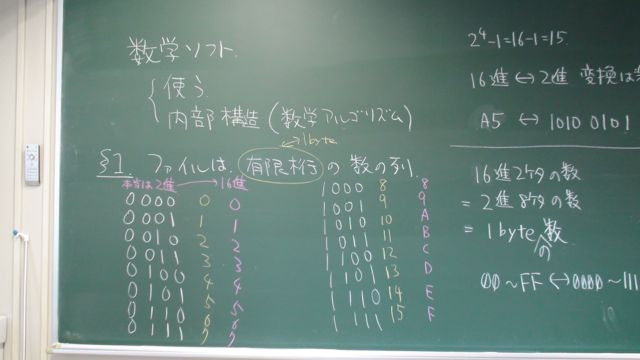 数学ソフト
使う
内部構造(数学アルゴリズム)
1byte
§1. ファイルは、有限桁の数の列.
本当は2進 → 16進
0000 0 0
0001 1 1
0010 2 2
0011 3 3
0100 4 4
0101 5 5
0110 6 6
0111 7 7
1000 8 8
1001 9 9
1010 10 A
1011 11 B
1100 12 C
1101 13 D
1110 14 E
1111 15 F
2⁴-1=16-1=15.
16進 ↔ 2進 変換は
A5 ↔ 1010 0101
16進2ケタの数
= 2進8ケタの数
= 1byteの数
00~FF ↔ 0000~111